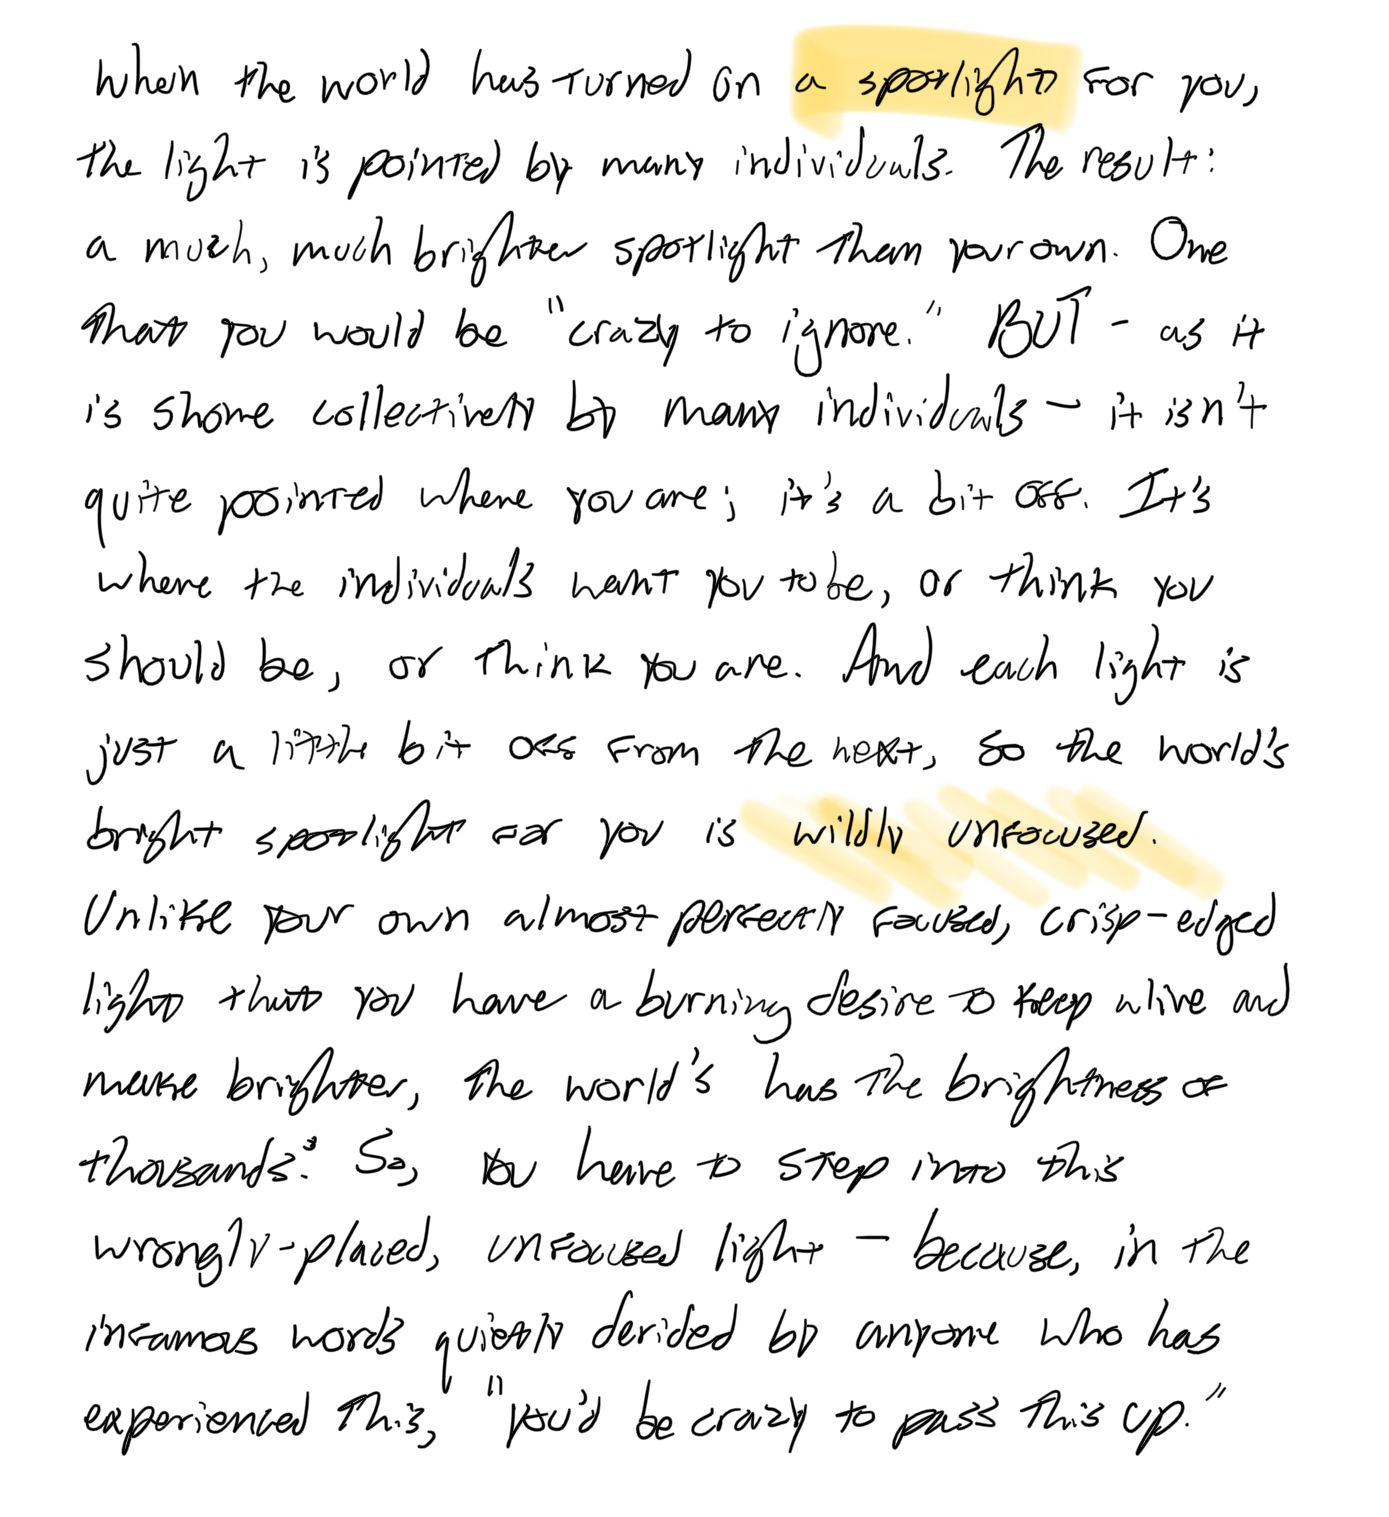 When the world has turned on a spotlight for you,
the light is pointed by many individuals. The result:
a much, much brighter spotlight than your own. One
that you would be "crazy to ignore." BUT - as it
is shone collectively by many individuals - it isn't
quite pointed where you are; it's a bit off. It's
where the individuals want you to be, or think you
should be, or think you are. And each light is
just a little bit off from the next, so the world's
bright spotlight for you is wildly unfocused.
Unlike your own almost perfectly focused, crisp-edged
light that you have a burning desire to keep alive and
make brighter, the world's has the brightness of
thousands. So, you have to step into this
wrongly-placed, unfocused light - because, in the
infamous words quietly derided by anyone who has
experienced this, "you'd be crazy to pass this up."